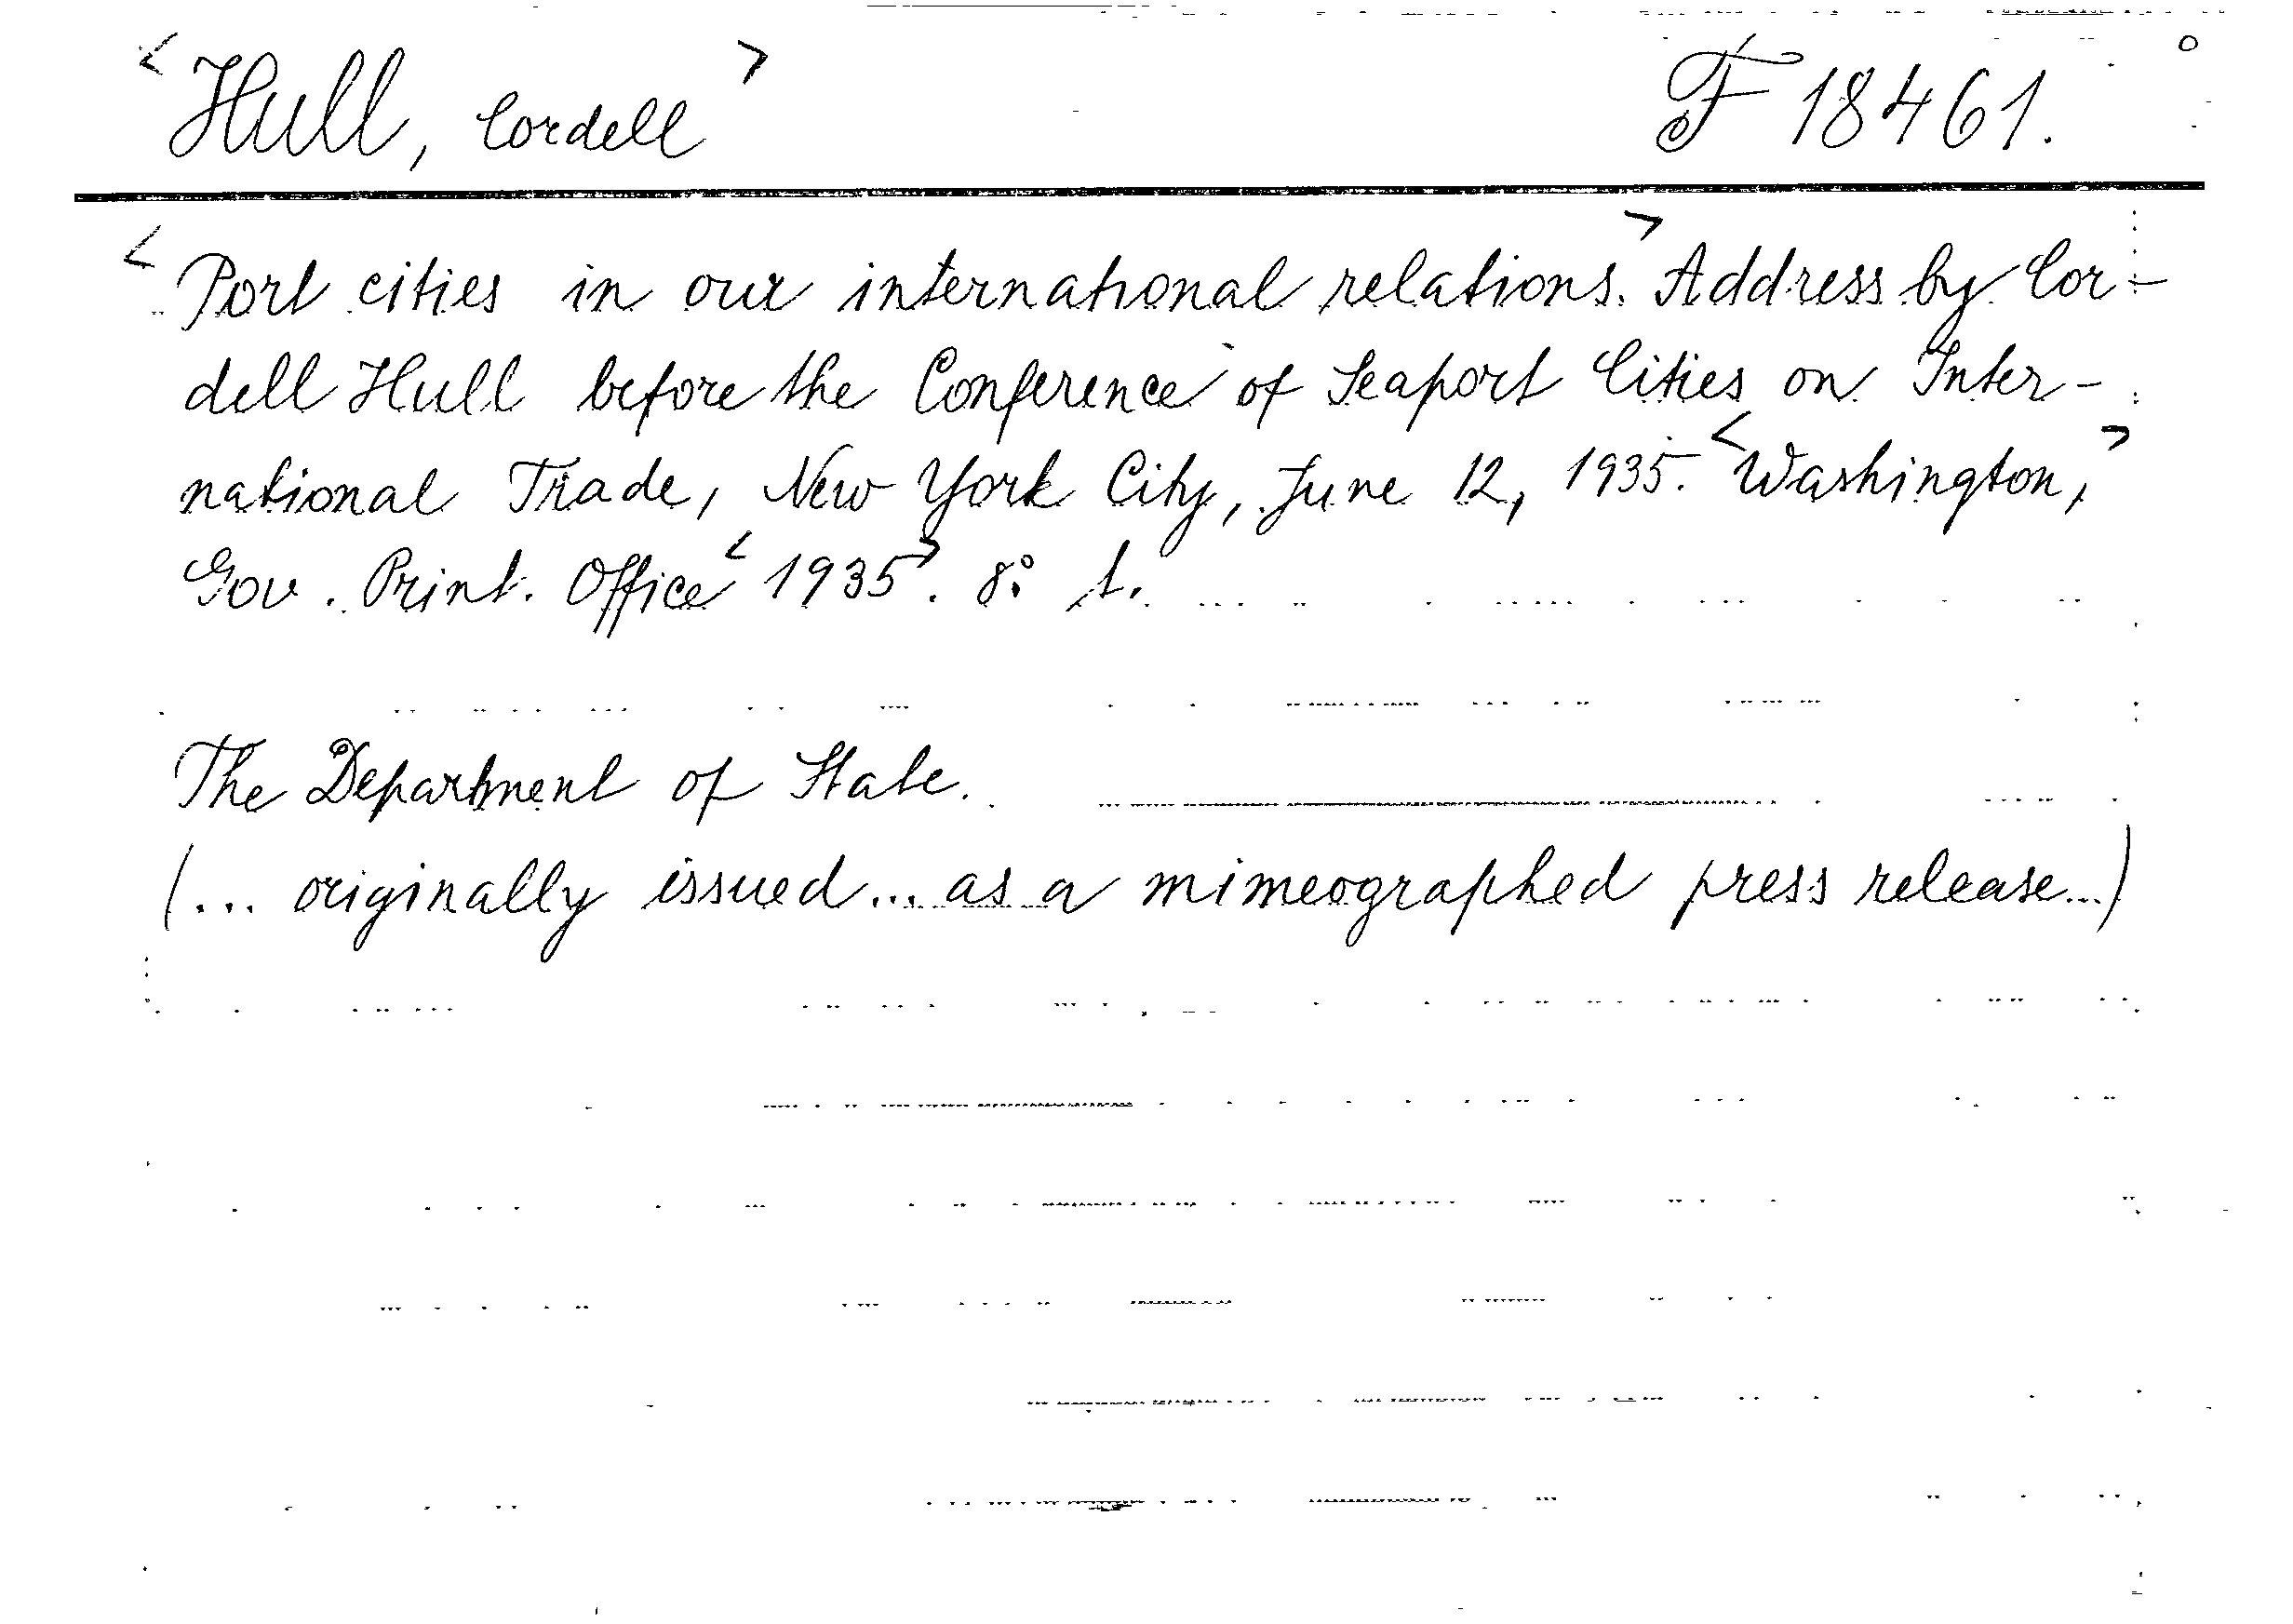 <Hull, Cordell> F 18461.
<Port cities in our international relations.> Address by Cor-
dell Hull before the Conference of Seaport Cities on Inter-
national Trade, New York City, June 12, 1935. <Washington,>
Gov. Print. Office <1935>. 8° 1.
The Department of State.
(... originally issued... as a mimeographed press release...)